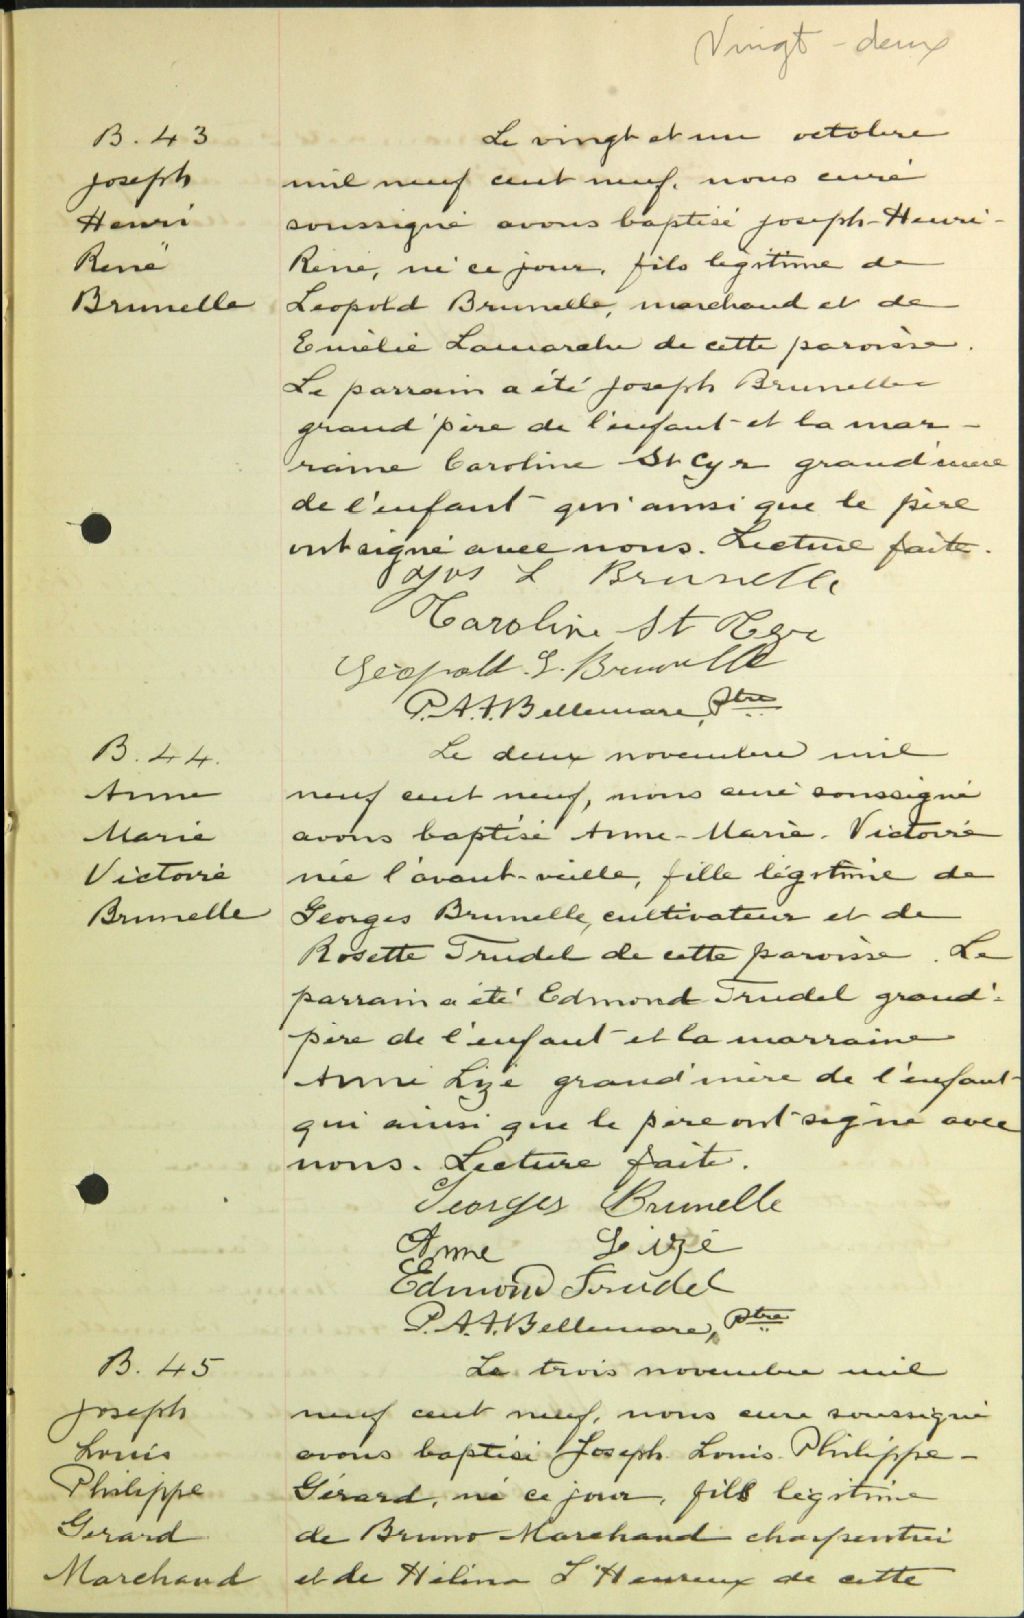 Vingt-deux
B. 43
Joseph
Henri
René
Brunelle
Le vingt et un octobre
mil neuf cent neuf, nous curé
soussigné avons baptisé Joseph-Henri-
René, né ce jour, fils légitime de
Léopold Brunelle, marchand et de
Emélie Lamarche de cette paroisse.
Le parrain a été Joseph Brunelle
grand'père de l'enfant et la mar-
raine Caroline St Cyr grand'mère
de l'enfant qui ainsi que le père
ont signé avec nous. Lecture faite.
Jos L Brunelle
Caroline St Cyr
Léopold. L. Brunelle
P.A.A. Bellemare, Ptre
B. 44.
Anne
Marie
Victoire
Brunelle
Le deux novembre mil
neuf cent neuf, nous curé soussigné
avons baptisé Anne-Marie-Victoire
née l'avant-veille, fille légitime de
Georges Brunelle, cultivateur et de
Rosette Trudel de cette paroisse. Le
parrain a été Edmond Trudel grand'-
père de l'enfant et la marraine
Anne Lizé grand'mère de l'enfant
qui ainsi que le père ont signé avec
nous. Lecture faite.
Georges Brunelle
Anne Lizé
Edmond Trudel
P.A.A. Bellemare, Ptre
B. 45
Joseph
Louis
Philippe
Gérard
Marchand
Le trois novembre mil
neuf cent neuf, nous curé soussigné
avons baptisé Joseph Louis Philippe-
Gérard, né ce jour, fils légitime
de Bruno Marchand charpentier
et de Hélina L'Heureux de cette